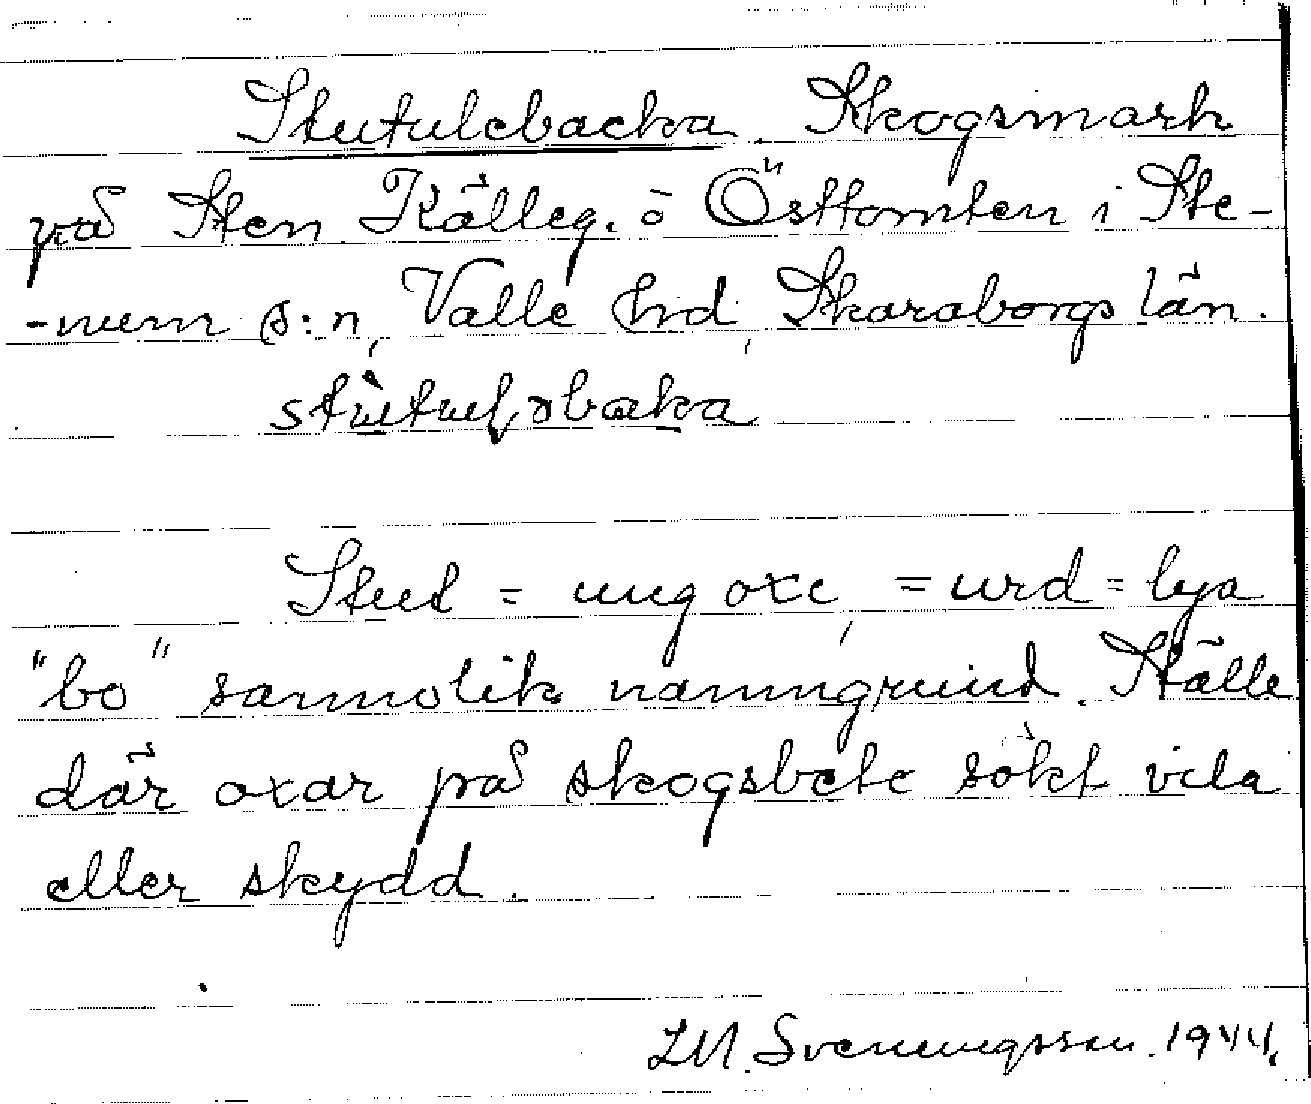 Stutulebacka. Skogsmark
på Sten Källeg. o Östtomten i Ste-
-num s:n, Valle hrd Skaraborgs län.
Stut = ung oxe, = urd = lya
"bo" sannolik namngrund. Ställe
där oxar på skogsbete sökt vila
eller skydd.
Svenungsson. 1944.